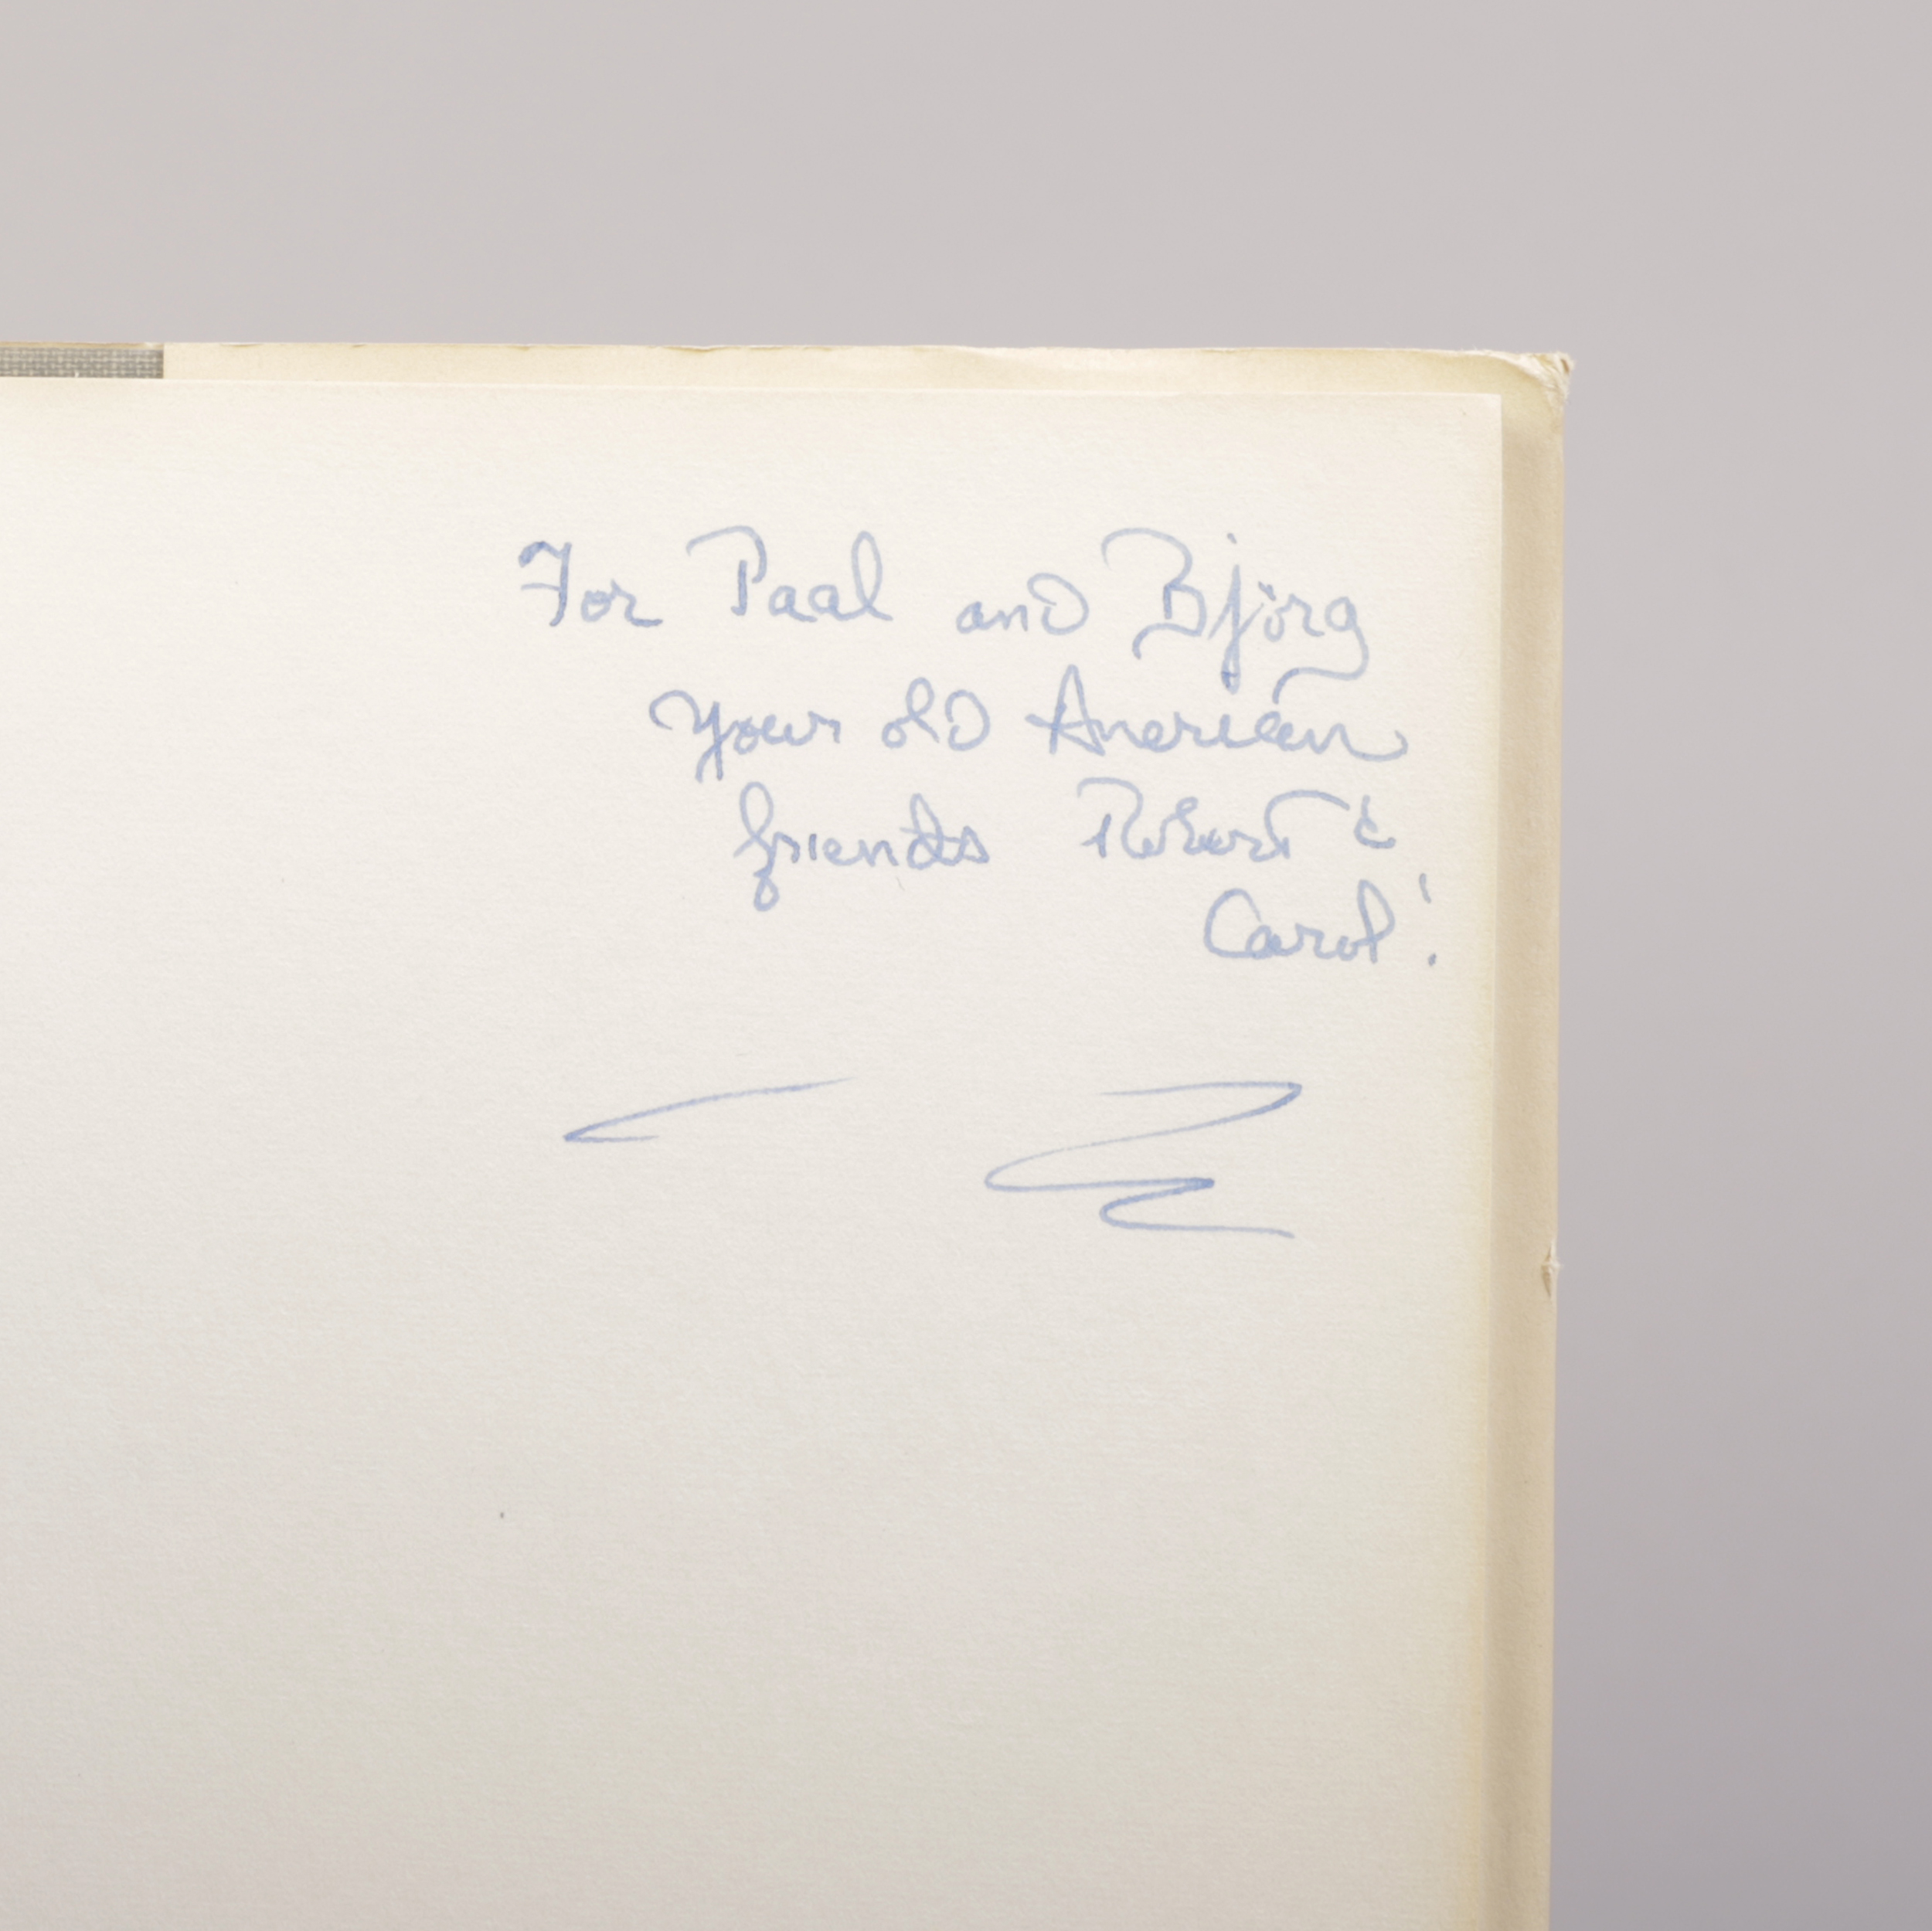 For Paal and Björg
your old American
friends Robert &
Carol!